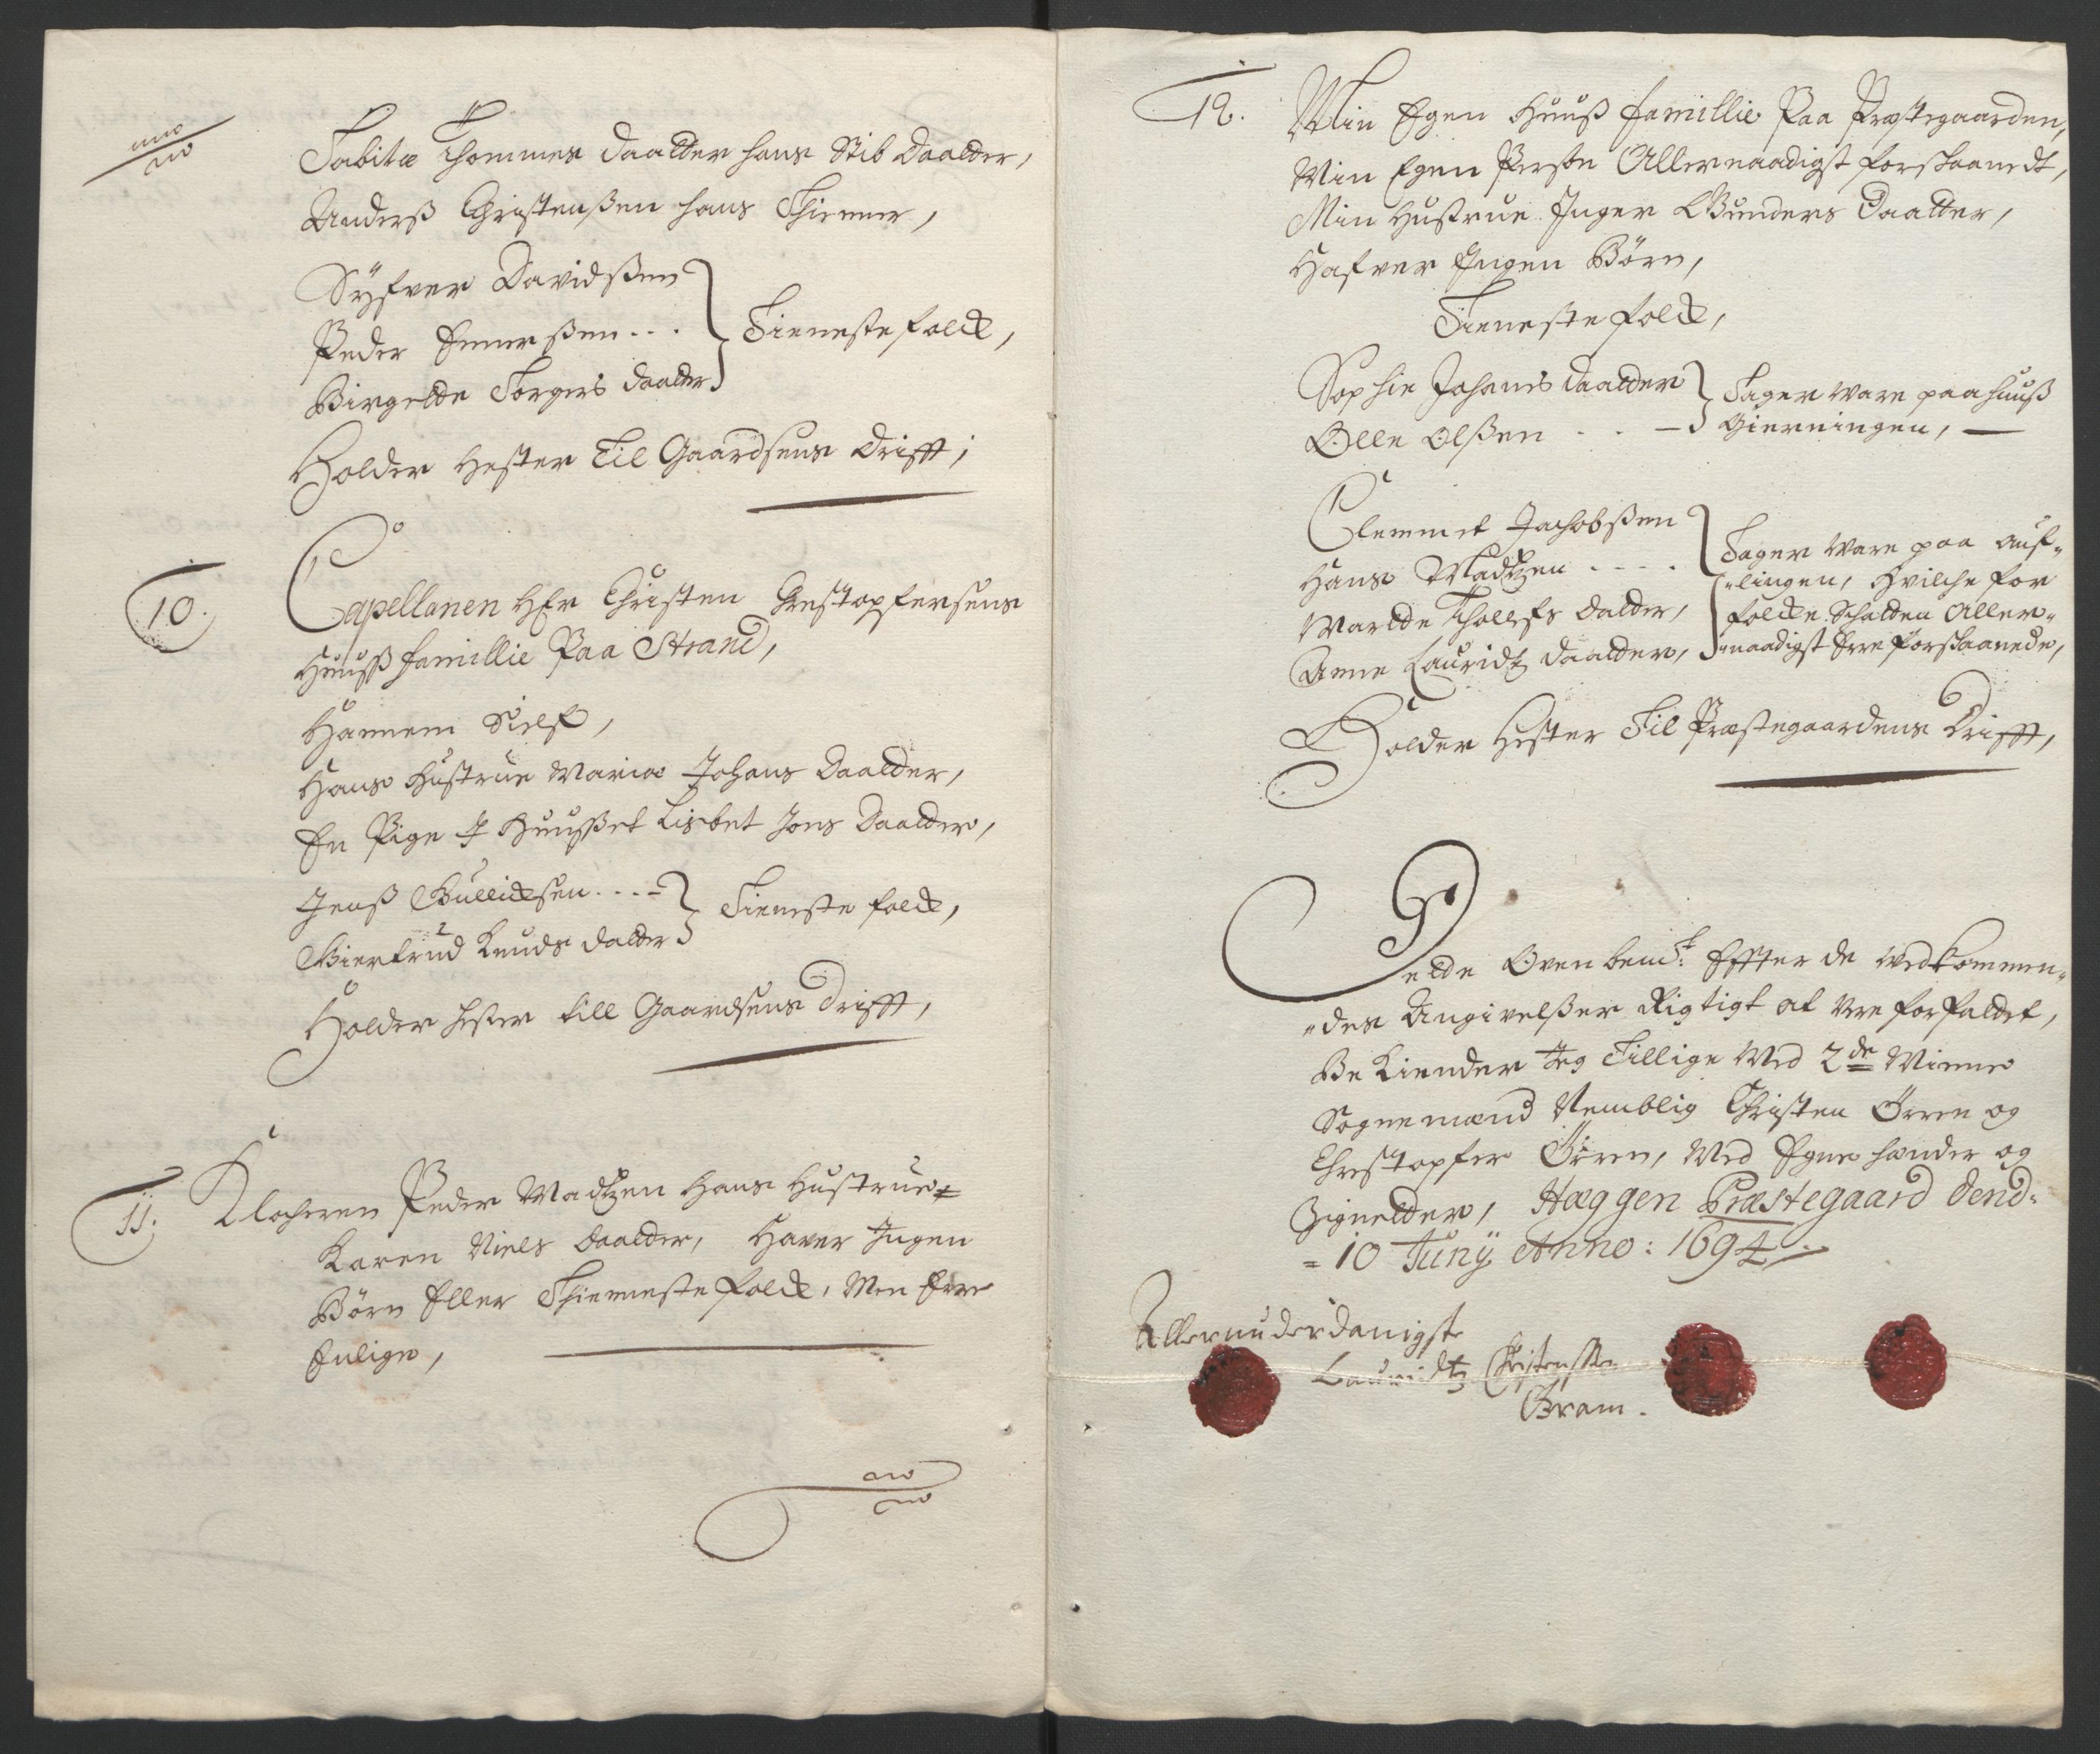 Tabitæ Thommes daatter hans Stib daatter,
Anderß Christenßen hans Thiener,
Syfver Davidßen
Peder Enerßen . . .
Birgette Torgers daatter
Tienestefolck,
Holder Hester til Gaardsens Drifft,
10.
Capellanen Her Christen Chrestopfersens
Huuß famillie Paa Strand,
Hannem Sielf,
Hans Hustrue Maria Johans Daatter,
En Pige J Huusset Lisbet Jons Daatter,
Jenß Gullicksen . . . .
Giertrud Knuds datter
Tieneste folck,
Holder Hester till Gaardsens Drifft,
11.
Klocheren Peder Madtzen hans Hustrue
Karen Niels daatter, Haver Ingen
Børn Eller Thienestefolck, Men Ere
Enlige,
12.
Min Egen Huuß famillie Paa Præstegaarden,
Min Egen Persohn Allernaadigst forskaanedt,
Min Hustrue Inger Gunders Daatter,
Hafver Ingen Børn,
Tienestefolck,
Sophie Johanes daatter
Olle Olßen . . —
Tager Ware paa huuß
Gierningen, —
Clemmet Jachobßen
Hans Madtzen . . . .
Marete Thollefs datter,
Anne Lauridtz daatter,
Tager Ware paa auf-
lingen, Hvilche for
folck Schatten Aller-
naadigst Ere forskaanede,
Holder Hester Til Præstegaardens Drifft,
Dette Ovenbemt: Effter de vedkommen-
des Angivelßer Rigtigt at Være forfattet,
Bekiender Jeg Tillige Med 2de Mine
Sognemænd Nemblig Christen Ørren og
Chrestopfer Ørren, Med Egne hænder og
Zigneter, Hæggen Præstegaard dend
10 Junÿ Anno: 1694
Allerunderdanigste
Lauridtz Christenssen
Gram.